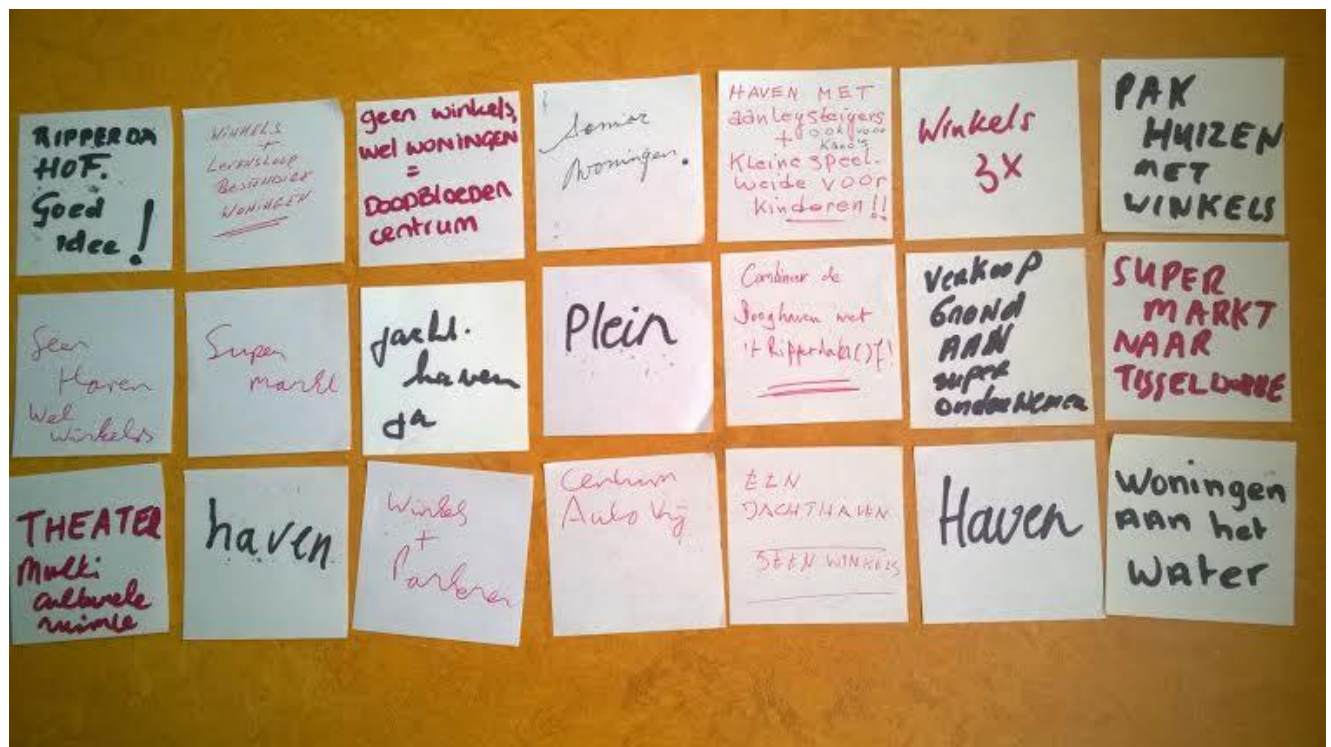 RIPPERDA
HOF.
Goed
idee!
WINKELS
+
LEVENSLOOP
BESTENDIGE
WONINGEN
geen winkels,
wel WONINGEN
=
DOODBLOEDEN
centrum
Senior
woningen.
HAVEN MET
aanlegsteigers
+ ook voor
Kano's
Kleine speel-
weide voor
kinderen!!
Winkels
3X
PAK
HUIZEN
MET
WINKELS
Geen
Haven
Wel
winkels
Super
markt
jacht.
haven
ja
Plein
Combineer de
Jachthaven met
't Ripperdahof!
VERKOOP
GROND
AAN
super
ondernemer
SUPER
MARKT
NAAR
THEATER
Multi
culturele
ruimte
haven
Winkels
+
Parkeren
Centrum
Auto vrij
EEN
JACHTHAVEN
GEEN WINKELS
Haven
Woningen
AAN het
Water